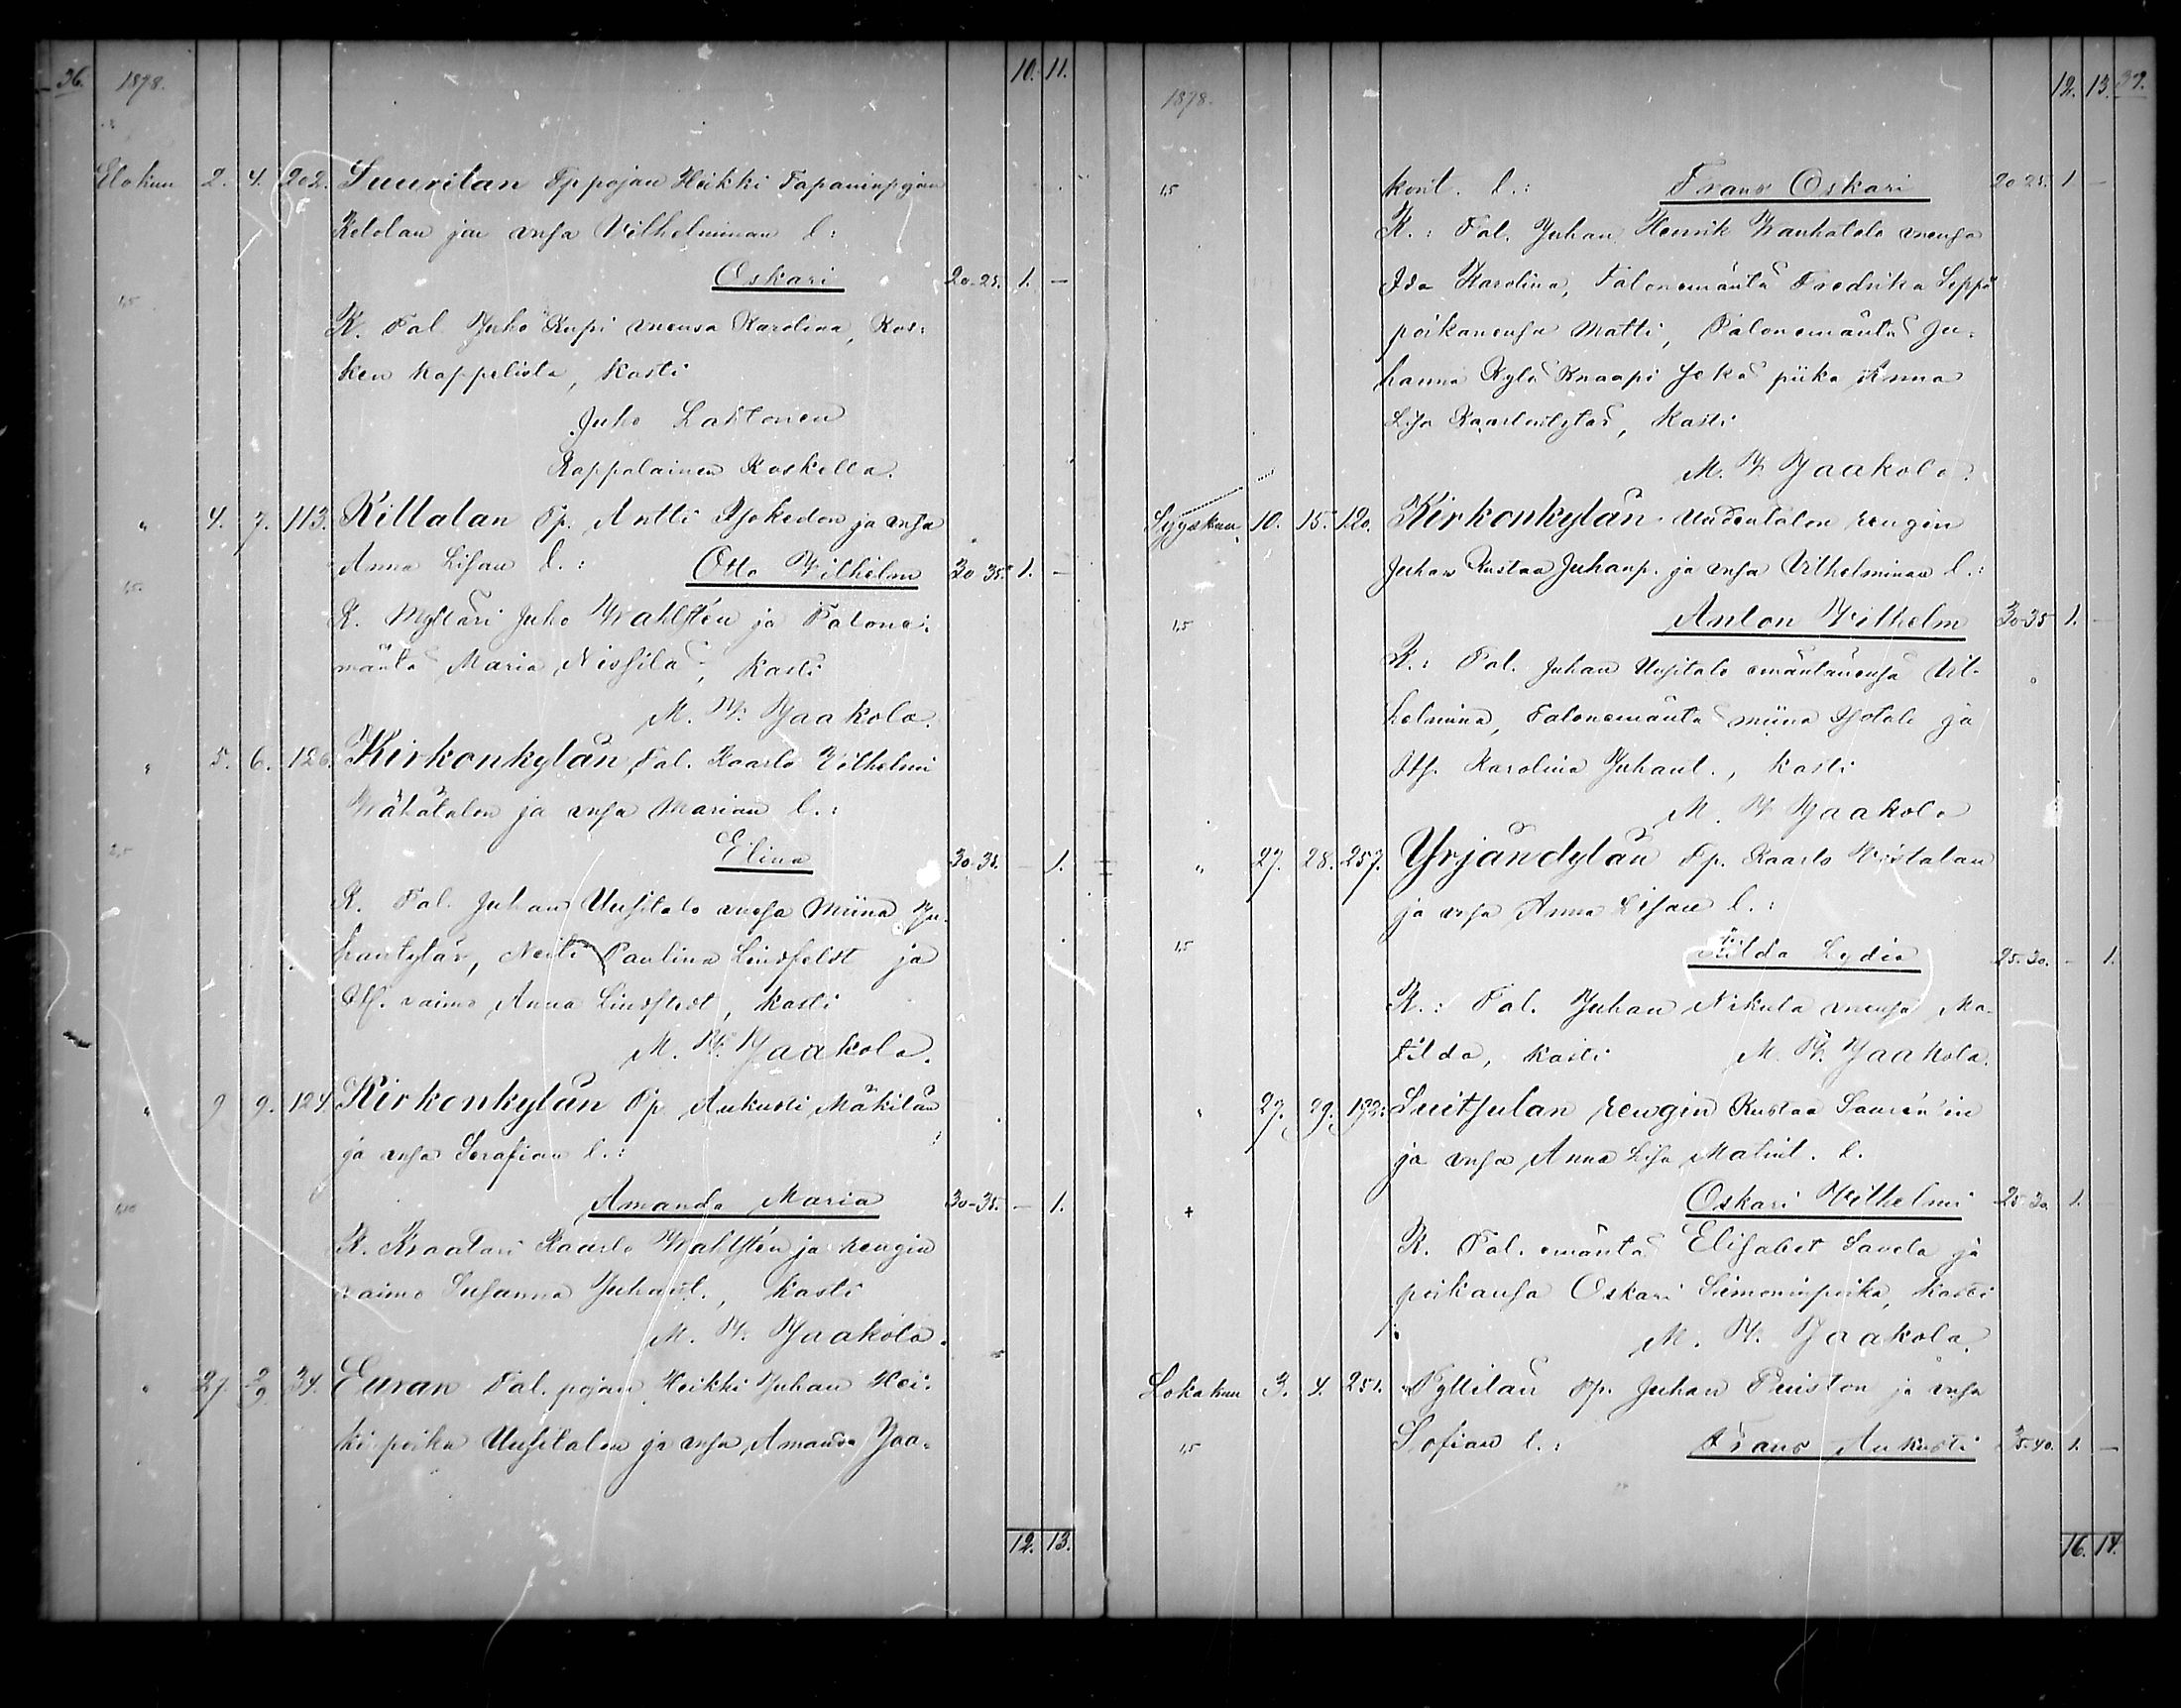 36. 1878. 10. 11.
Elokuu 2. 4. 202. Suurilan Tppojan Heikki Tapaninpojan
Kelolan ja vnsa Vilhelminan l:
Oskari 20-25. 1. —
15
K. Tal. Juho Rupi vneusa Karolina, Kos-
ken kappelista, kasti
Juho Lahtonen
Kappalainen Koskella.
" 4. 7. 113. Killalan Tp. Antti Isokedon ja vnsa
Anna Lisan l.: Otto Vilhelm 30 35. 1. —
15.
K. Mylläri Juho Wahlstén ja Talone-
mäntä Maria Nissilä, kasti
M. W. Jaakola.
" 5. 6. 126. Kirkonkylän Tal. Kaarlo Vilhelmi
Wähätalon ja vnsa Marian l.:
Elina 30-35. — 1.
25
K. Tal. Juhan Uusitalo vnesa Miina Ju-
hantytär, Neiti Paulina Lindfeldt ja
Its. vaimo Anna Lindstedt, kasti
M. W. Jaakola.
" 9 9. 124. Kirkonkylän Tp. Aukusti Mäkilän
ja vnsa Serafian l.:
Amanda Maria 30-35. — 1.
K. Kraatari Kaarlo Wahlstén ja rengin
vaimo Susanna Juhant., kasti
M. W. Jaakola.
" 27. 2/9. 34. Euran Tal. pojan Heikki Juhan Hei-
kipoika Uusitalon ja vnsa Amanda Jaa-
12. 13.
1878. 12. 13. 37.
15 kont. l.: Frans Oskari 20 25. 1. —
K.: Tal. Juhan Henrik Wanhatalo vneusa
Ida Karolina, Talonemäntä Fredrika Seppä
poikaneusa Matti, Talonemäntä Ju-
hanna Kylä Knaapi sekä piika Anna
Lisa Kaarlentytär, kasti
M. W. Jaakola.
Syyskuu. 10. 15. 120. Kirkonkylän Uudentalon rengin
Juhan Kustaa Juhanp. ja vnsa Vilhelminan l.:
Anton Vilhelm 30-35 1. —
15
K.: Tal. Juhan Uusitalo emäntäneusa Vil-
helmina, Talonemäntä Miina Isotalo ja
Its. Karolina Juhant., kasti
M. W. Jaakola
" 27. 28. 257. Yrjänäylän Tp. Kaarlo
ja vnsa Anna Lisan l.:
15 Tilda Lydia 25-30. — 1.
K.: Tal. Juhan Nikula vneusa Ma-
tilda, kasti M. W. Jaakola.
" 27. 29. 192. Suitsulan rengin Kustaa Saurén'in
ja vnsa Anna Lisa Matint. l.
+ Oskari Vilhelmi 25-30. 1.
K. Tal. emäntä Elisabet Savela ja
poikansa Oskari Simoninpoika, kasti
M. W. Jaakola.
Lokakuu 3. 4. 251. Pyllilän Tp. Juhan Puiston ja vnsa
15 Sofian l.: Frans Aukusti 35-40. 1. —
16. 14.